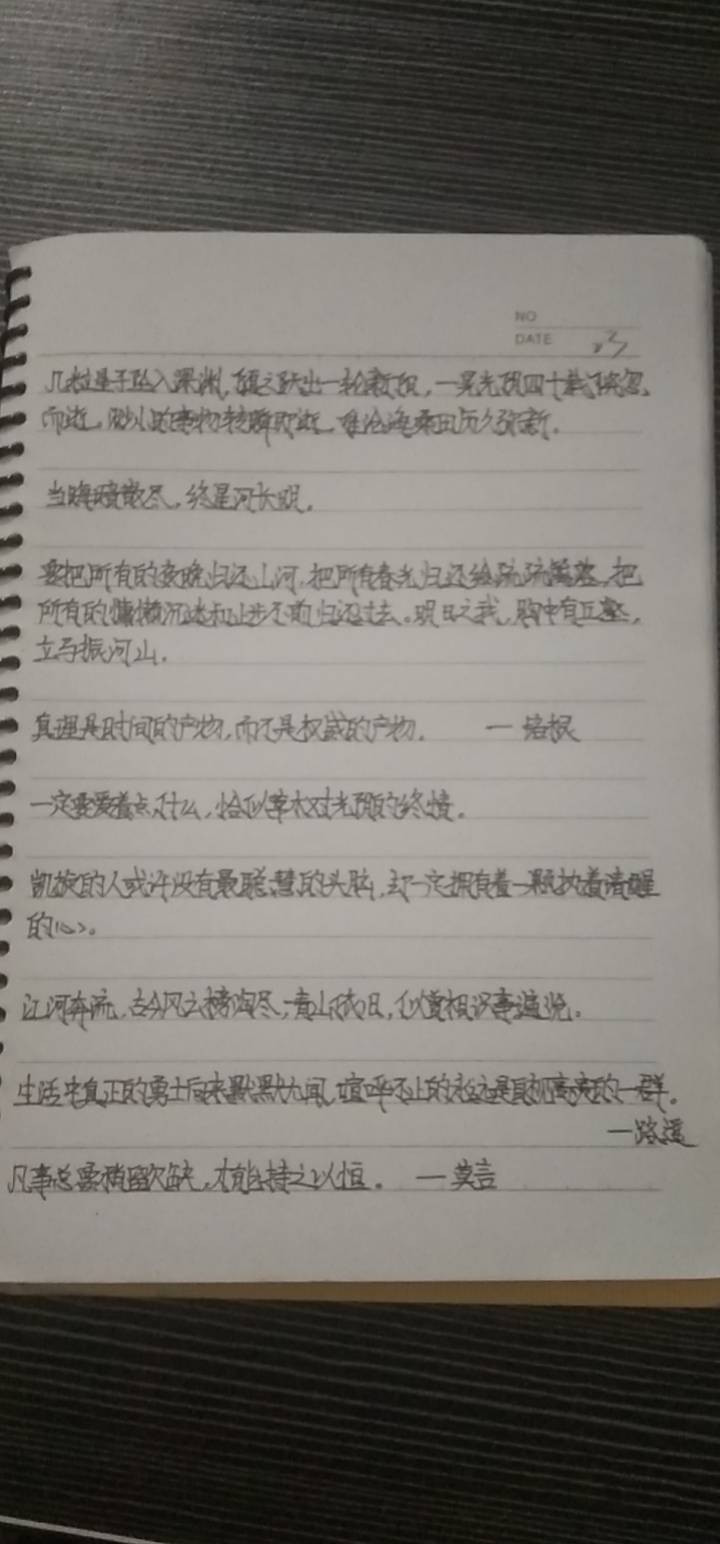 NO
DATE 23
几粒星子坠入深渊,随之跃出一轮新阳,一晃光阴四十载倏忽
而逝。渺小的事物转瞬即逝,唯沧海桑田历久弥新。
当晦暗散尽,终星河长明。
要把所有的夜晚归还山河,把所有春光归还给疏疏篱落,把
所有的慵懒沉迷和止步不前归还过去。明日之我,胸中有丘壑,
立马振河山。
真理是时间的产物,而不是权威的产物。 —培根
一定要爱着点什么,恰似草木对光阴的钟情。
凯旋的人或许没有最聪慧的头脑,却一定拥有着一颗执着清醒
的心。
江河奔流,古今风云榜淘尽,青山残日,似曾相识事遍说。
生活中真正的勇士向来默默无闻,喧哗不止的永远是自视高贵的一群。
—路遥
凡事总需稍留欠缺,才能持之以恒。 —莫言